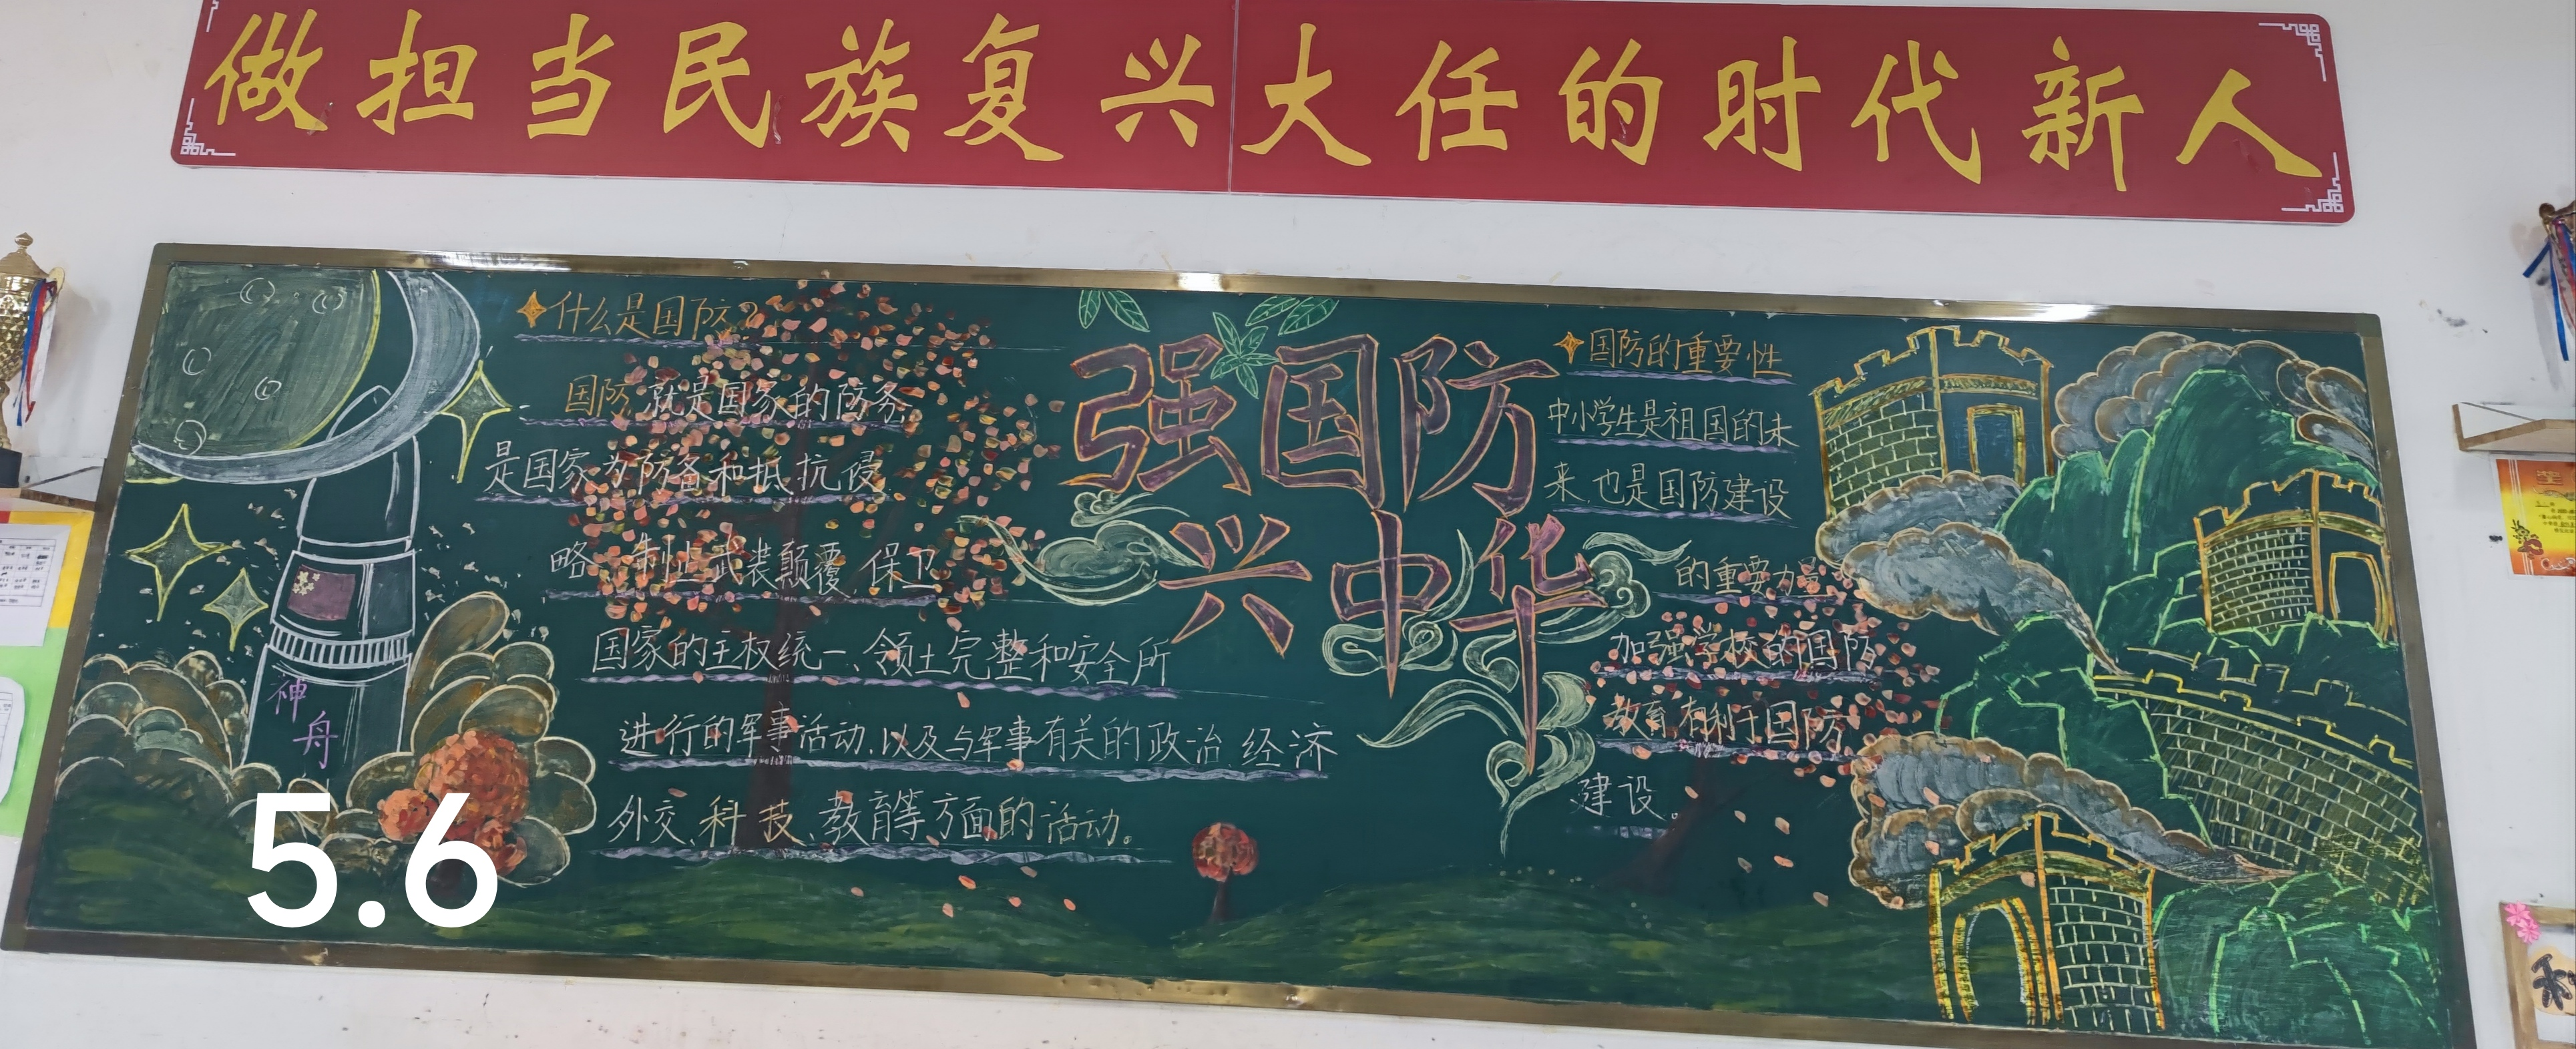 做担当民族复兴大任的时代新人
什么是国防?
国防,就是国家的防务,
是国家为防备和抵抗侵
略,制止武装颠覆,保卫
国家的主权统一、领土完整和安全所
进行的军事活动,以及与军事有关的政治、经济
外交、科技、教育等方面的活动。
强国防
兴中华
国防的重要性
中小学生是祖国的未
来,也是国防建设
的重要力量
加强学校的国防
教育有利于国防
建设。
神舟
5.6